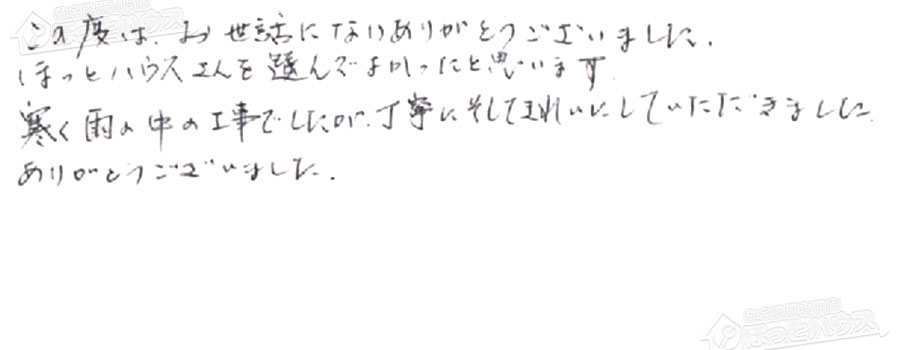 この度は、お世話になりありがとうございました。
ほっとハウスさんを選んでよかったと思います
寒く雨の中の工事でしたが、丁寧にそしてきれいにしていただきました。
ありがとうございました。
住宅設備専門店
ほっとハウス